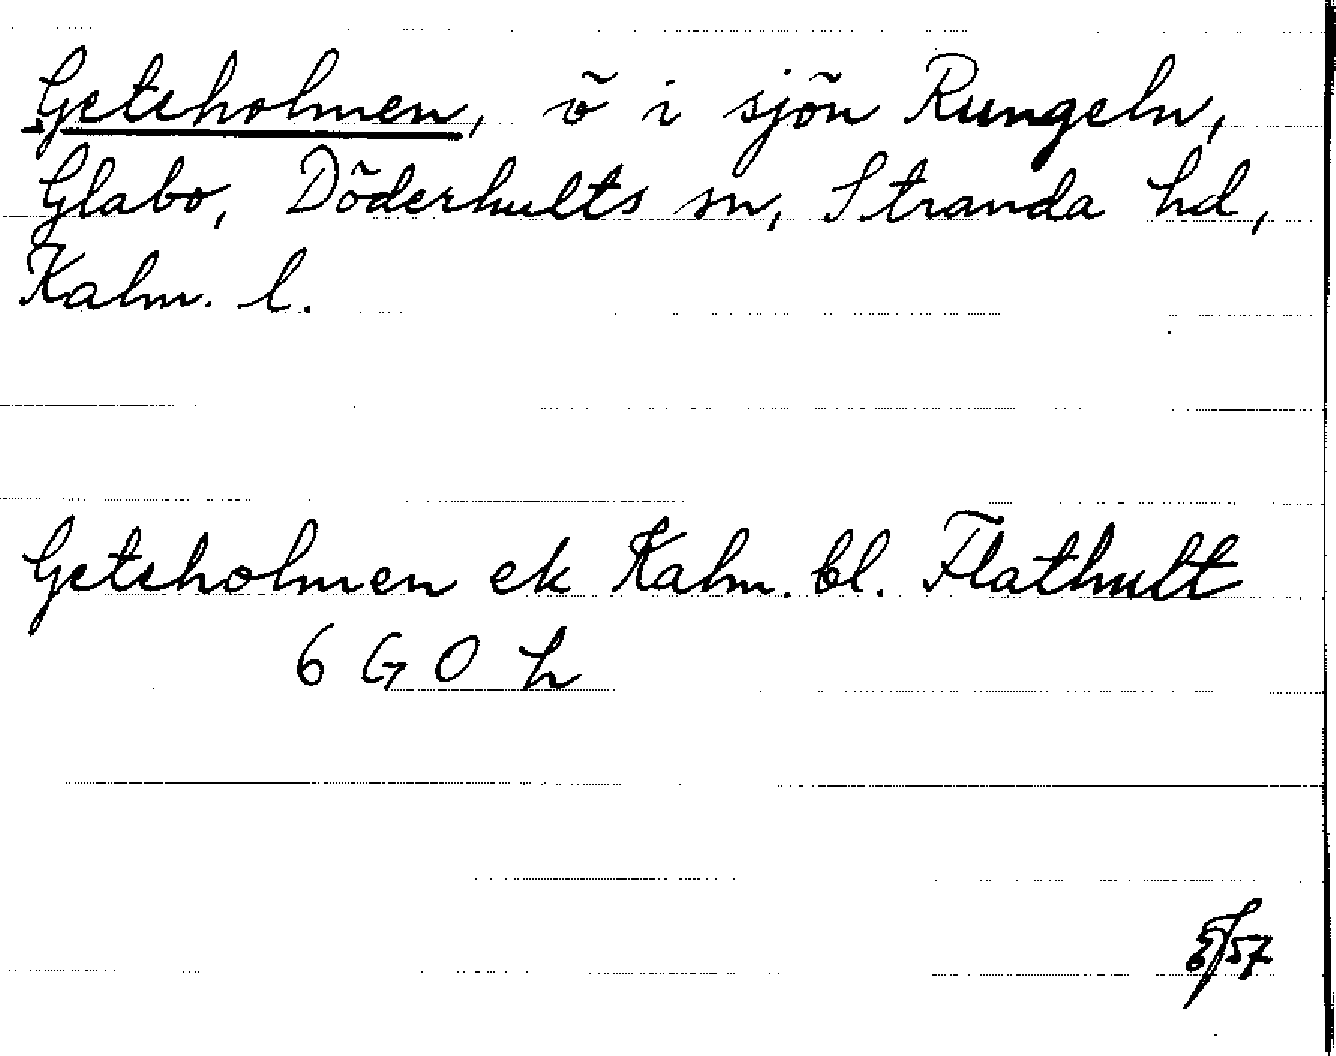 Geteholmen, ö i sjön Rungeln,
Glabo, Döderhults sn, Stranda hd,
Kalm. l.
Geteholmen ek Kalm. bl. Flathult
6 G O h